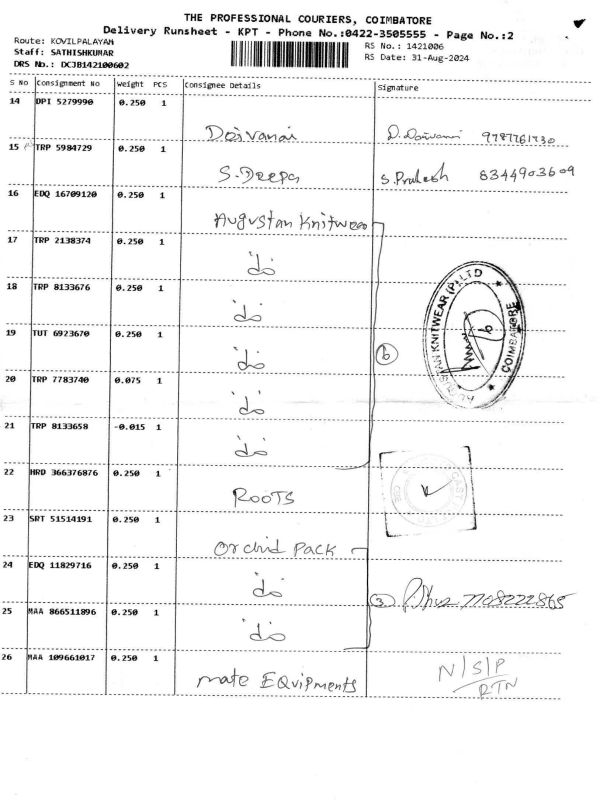 THE PROFESSIONAL COURIERS, COIMBATORE
Delivery Runsheet - KPT - Phone No.:0422-3505555 - Page No.:2
Route: KOVILPALAYAM
Staff: SATHISHKUMAR
DRS No.: DCJB142100602
RS No.: 1421006
RS Date: 31-Aug-2024
S No Consignment No Weight PCS Consignee Details Signature
14 DPI 5279990 0.250 1
Doivanai D. Doivanai 9787761730
15 TRP 5984729 0.250 1
S. Deepa S. Prakash 8344903609
16 EDQ 16709120 0.250 1
Augustan Knitwear
17 TRP 2138374 0.250 1
"do"
18 TRP 8133676 0.250 1
"do"
19 TUT 6923670 0.250 1
"do" 6
20 TRP 7783740 0.075 1
"do"
21 TRP 8133658 -0.015 1
"do"
AUGUSTAN KNITWEAR (P) LTD
COIMBATORE
22 HRD 366376876 0.250 1
ROOTS
23 SRT 51514191 0.250 1
Orchid Pack
24 EDQ 11829716 0.250 1
"do" 3 7708222865
25 MAA 866511896 0.250 1
"do"
26 MAA 109661017 0.250 1
mate EQuipments N/S/P
RTN